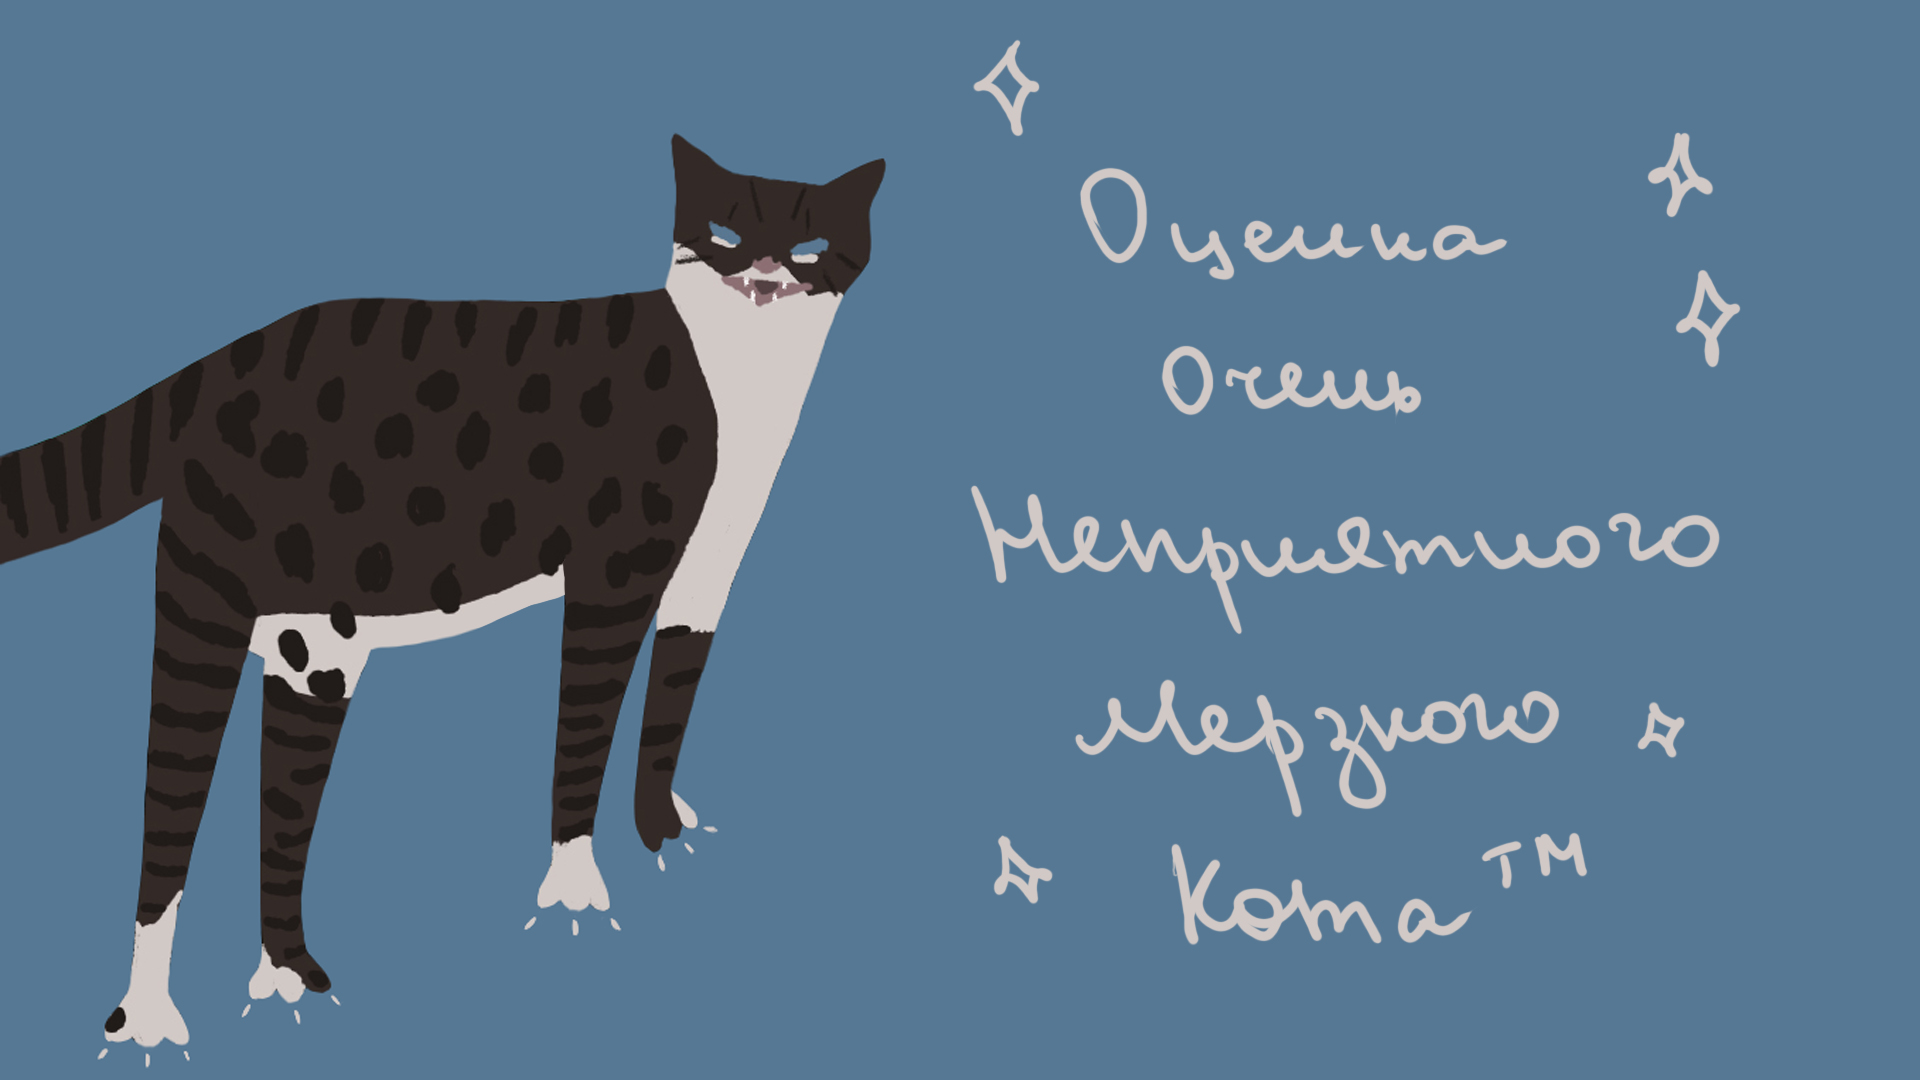 Оценка
Очень
Неприятного
Мерзкого
Кота™